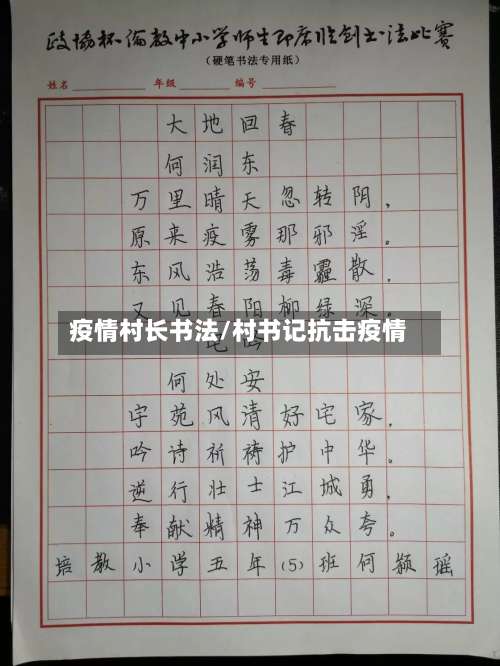 政协杯伦教中小学师生即席临创书法比赛
（硬笔书法专用纸）
姓名 年级 编号
大地回春
何润东
万里晴天忽转阴，
原来疫雾那邪淫。
东风浩荡毒霾散，
又见春阳柳绿深。
疫情村长书法/村书记抗击疫情
何处安
宇苑风清好宅家，
吟诗祈祷护中华。
逆行壮士江城勇，
奉献精神万众夸。
培教小学五年(5)班何颍瑶